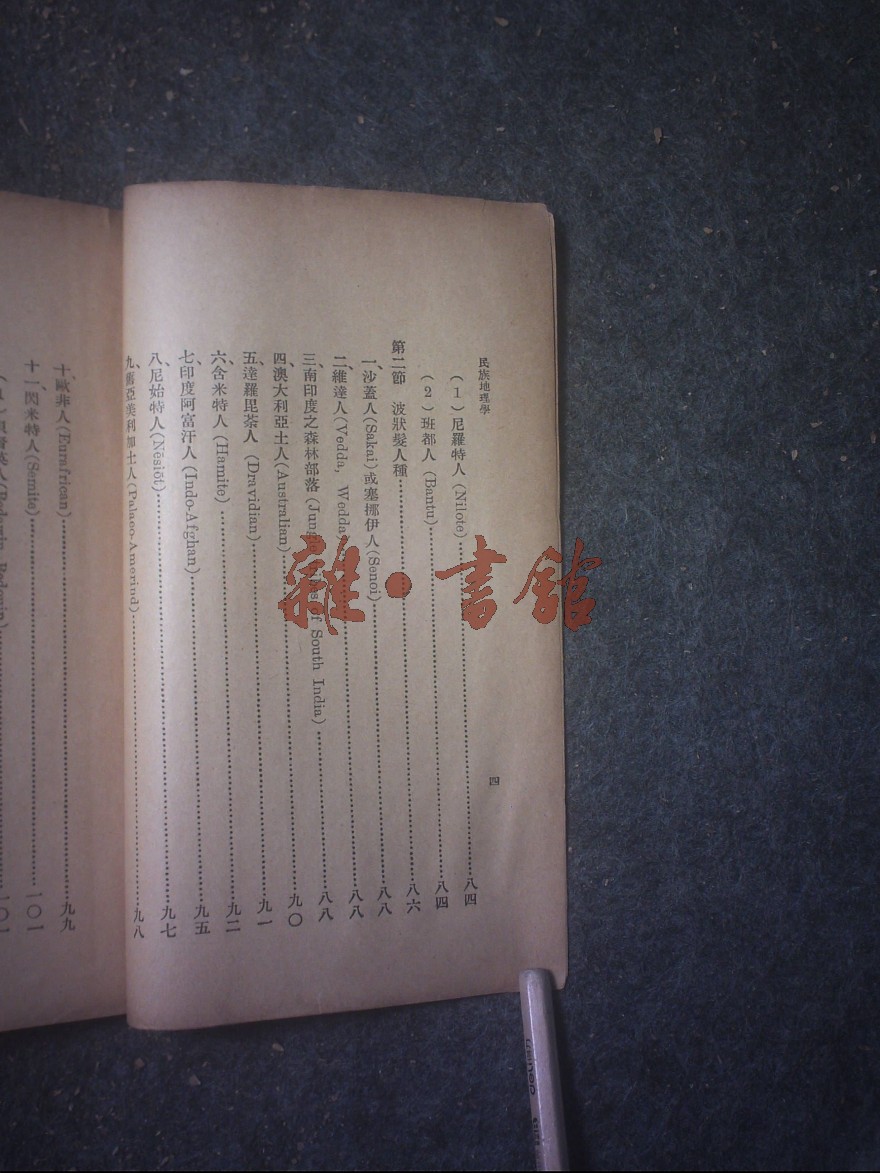 民族地理學
四
(1)尼羅特人(Nilote)……八四
(2)班都人(Bantu)……八四
第二節 波狀髮人種……八六
一、沙蓋人(Sakai)或塞挪伊人(Senoi)……八八
二、維達人(Vedda, Wedda……八八
三、南印度之森林部落(Jungle Tribes of South India)……八八
四、澳大利亞土人(Australian)……九〇
五、達羅毘荼人(Dravidian)……九一
六、含米特人(Hamite)……九二
七、印度阿富汗人(Indo-Afghan)……九五
八、尼始特人(Nesiot)……九七
九、舊亞美利加土人(Palaeo-Amerind)……九八
十、歐非人(Eurafrican)……九九
十一、閃米特人(Semite)……一〇一
雜·書館